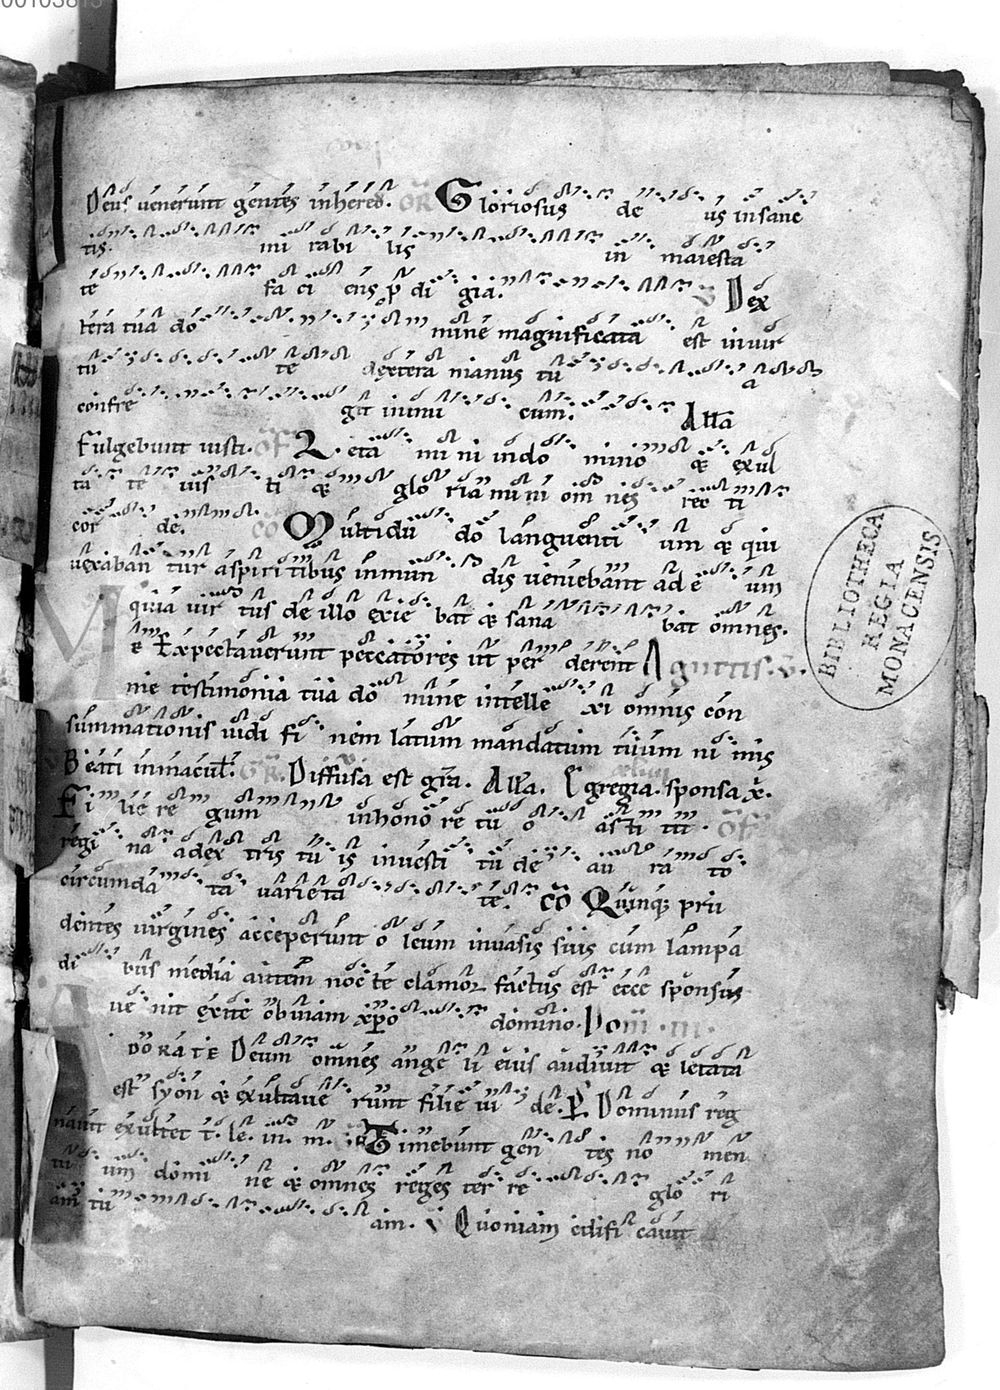 Deus uenerunt gentes inheredi. GR Gloriosus deus insanc
tis. mirabilis in maiesta
te faciens p di gia. V Dex
tera tua domine magnificata est inuir
tute dextera manus tua
confregit inimicum. Alla
Fulgebunt iusti. OF Letamini indomino & exul
tate iusti & gloriamini omnes recti
corde. CO Multitudo languentium & qui
uexabantur aspiritibus inmundis ueniebant ad eum
quia uirtus de illo exiebat & sanabat omnes.
Me Expectauerunt peccatores ut perderent Agnetis. V.
me testimonia tua domine intellexi omnis con
summationis uidi finem latum mandatum tuum nimis
Beati inmacul. GR. Diffusa est gra. Alla. Egregia. sponsa x.
Filie regum inhonore tuo astitit. OF
regina adextris tuis inuestitu deaurato
circumdata uarietate. CO Quinq; pru
dentes uirgines acceperunt oleum inuasis suis cum lampa
dibus media autem nocte clamor factus est ecce sponsus
uenit exite obuiam xpo domino. Dom. III.
ADORATE Deum omnes angeli eius audiuit & letata
est syon & exultauerunt filie iude. P Dominus reg
nauit exultet t. le. in. m. GR Timebunt gentes nomen
tuum domine & omnes reges terre glori
am tuam. V Quoniam edificauit
BIBLIOTHECA
REGIA
MONACENSIS